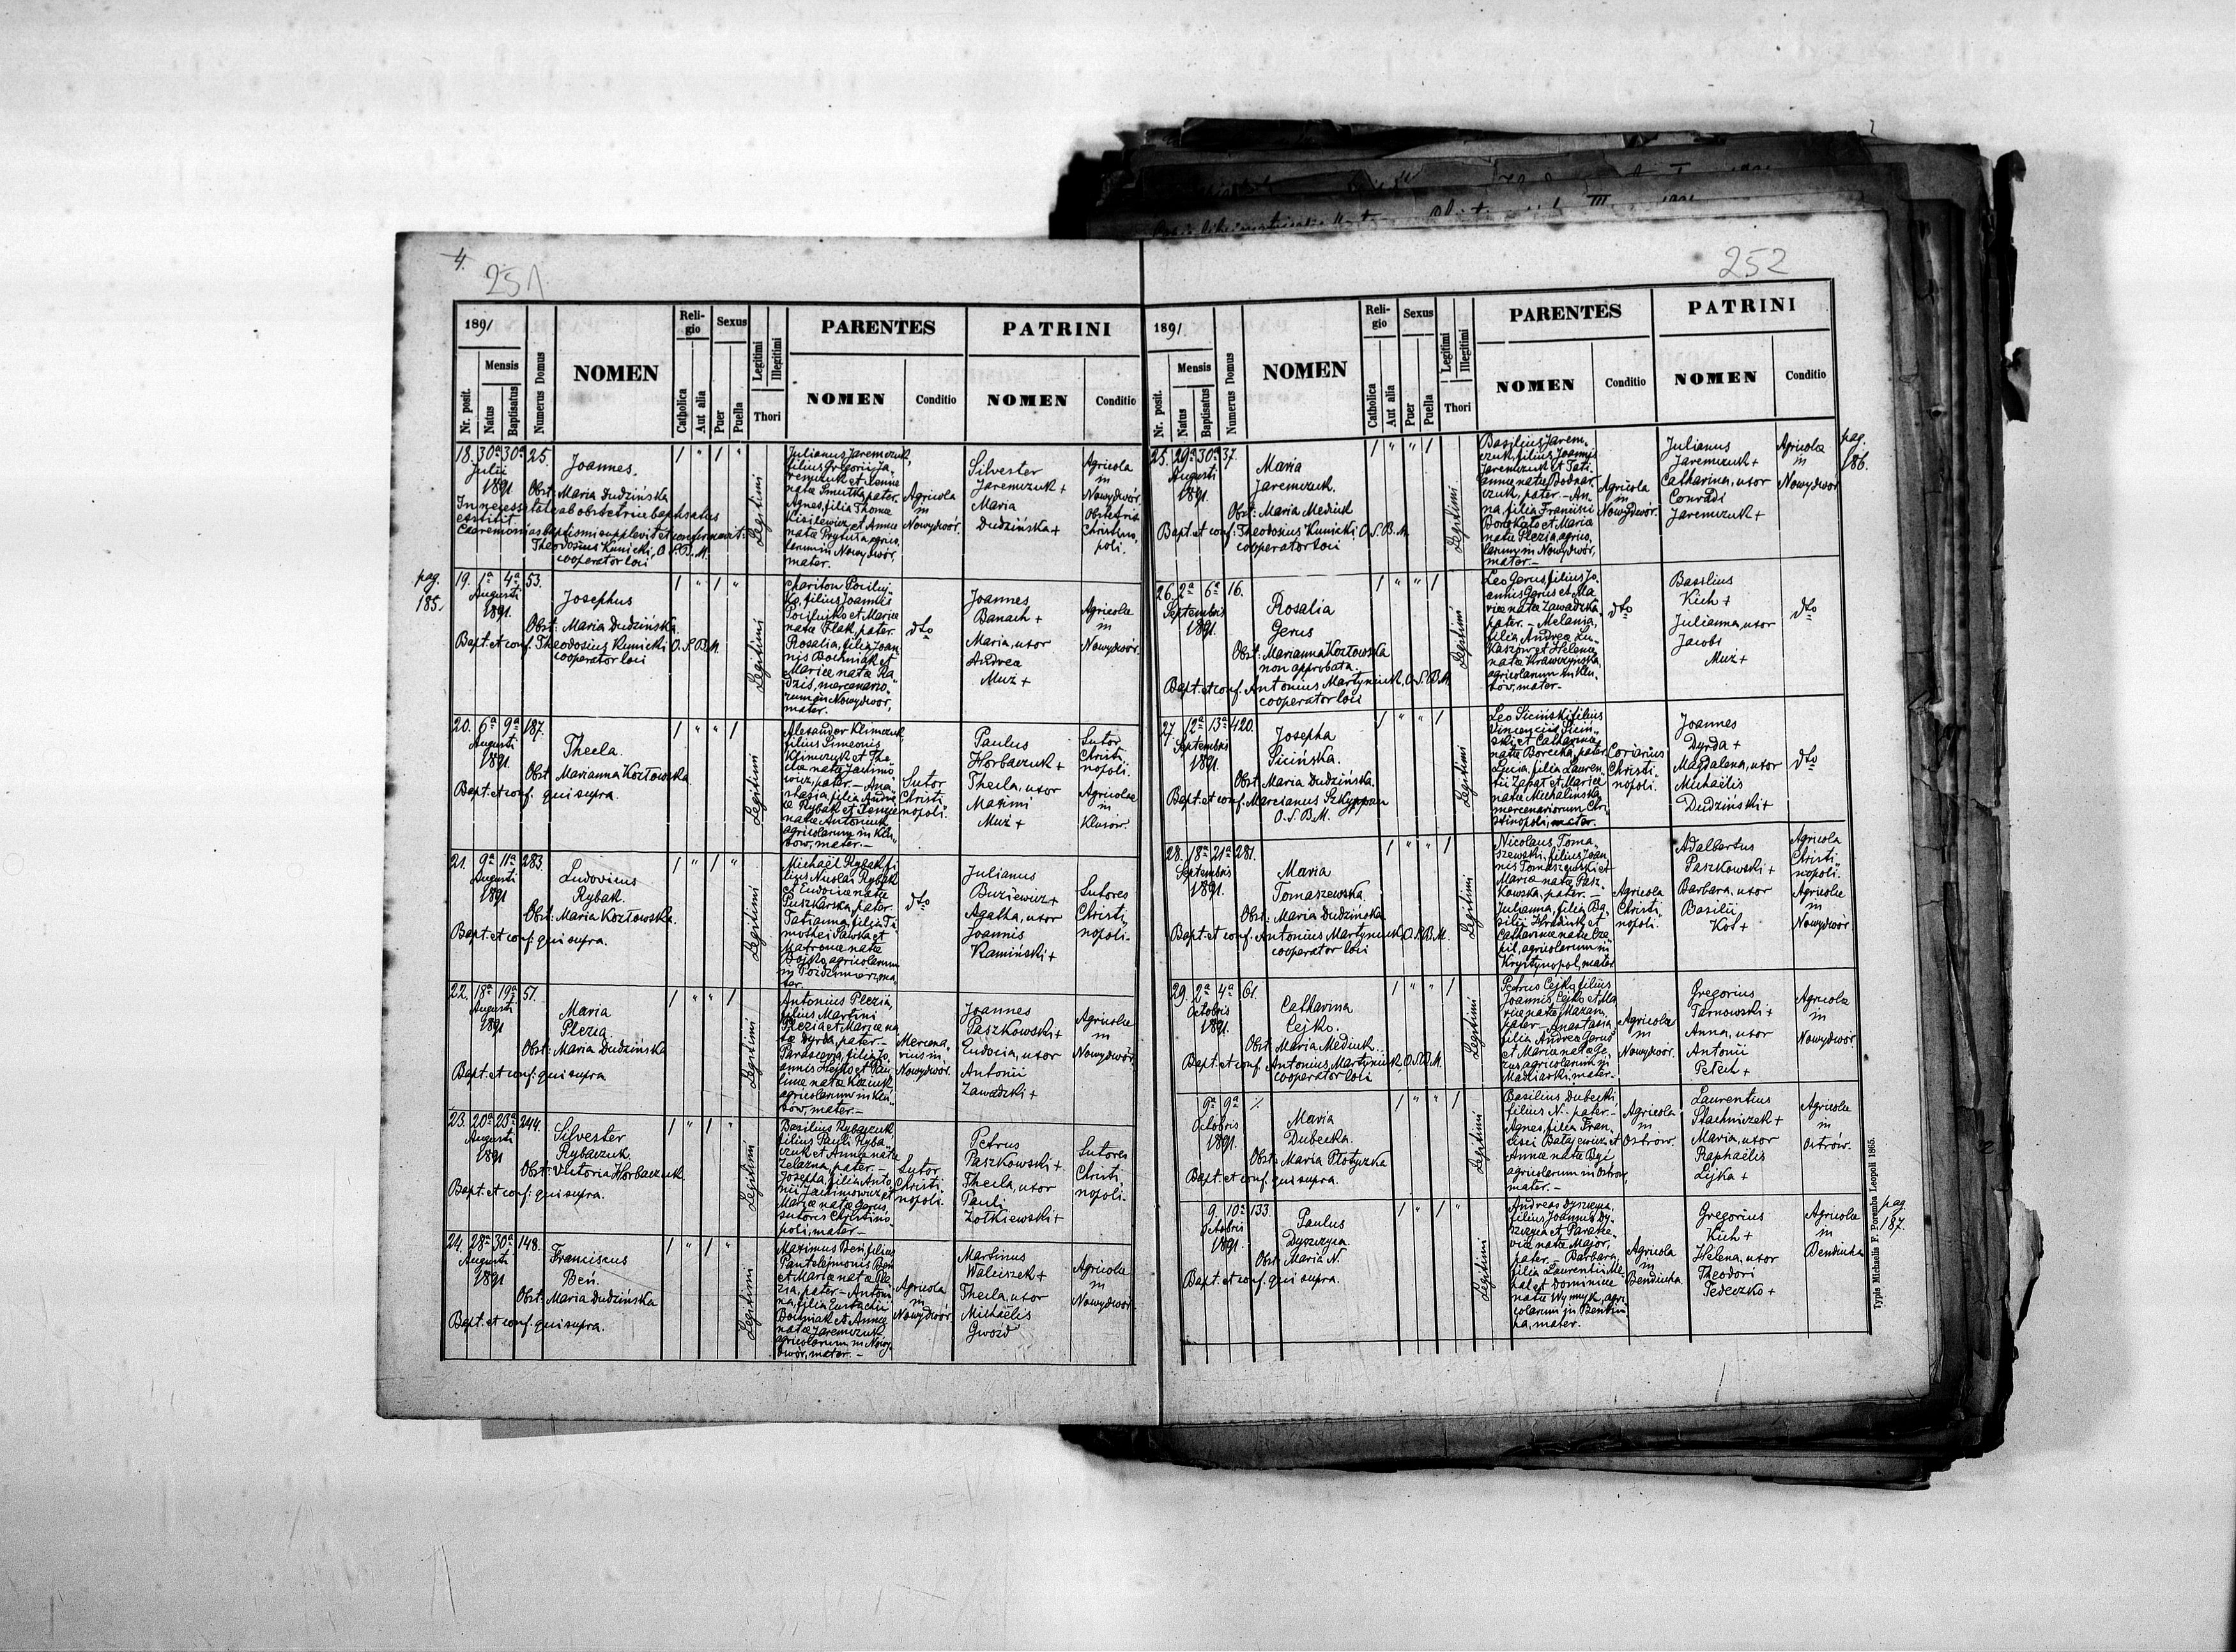 4.
251.
1891
Religio
Sexus
Legitimi
Illegitimi
PARENTES
PATRINI
Nr. posit.
Mensis
Natus
Baptisatus
Numerus Domus
NOMEN
Catholica
Aut alia
Puer
Puella
Thori
NOMEN
Conditio
NOMEN
Conditio
18. 30a 30a 25.
Julii
1891
Joannes.
Obst: Maria Dudzińska
In necessitate ab obstetrice baptisatus
extitit.
Caeremonias baptismi supplevit et confirmavit:
Theodosius Kunicki, O.S.B.M.
cooperator loci
1 " 1 "
Legitimi
Julianus Jaremczuk,
filius Gregorii Ja-
remczuk et Xeniae
natae Smutka, pater.
Agnes, filia Thomae
Kisilewicz et Annae
natae Prytuła, agrico-
larum in Nowydwór,
mater.
Agricola
in
Nowydwór.
Silvester
Jaremczuk +
Maria
Dudzińska +
Agricola
in
Nowydwór
Obstetrix
Christino-
poli.
pag.
185.
19. 1a 4a 53.
Augusti
1891.
Josephus
Obst: Maria Dudzińska.
Bapt. et conf. Theodosius Kunicki O.S.B.M.
cooperator loci
1 " 1 "
Legitimi
Chariton Pociluj-
ko, filius Joannis
Pocilujko et Mariae
natae Flak, pater.
Rosalia, filia Joan-
nis Bochniak et
Mariae natae Ra-
dzis, mercenario-
rum in Nowydwór,
mater.
dto
Joannes
Banach +
Maria, uxor
Andreae
Muż +
Agricolae
in
Nowydwór.
20. 6a 9a 187.
Augusti
1891.
Thecla.
Obst. Marianna Kozłowska
Bapt. et conf. qui supra.
1 " " 1
Legitimi
Alexander Klimczuk,
filius Simeonis
Klimczuk et The-
clae natae Jachimo-
wicz, pater. - Ana-
stasia, filia Andre-
ae Rybak et Xeniae
natae Antoniuk,
agricolarum in Klu-
sów, mater. -
Sutor
Christi-
nopoli.
Paulus
Horbaczuk +
Thecla, uxor
Maximi
Muż +
Sutor
Christi-
nopoli.
Agricolae
in
Klusów.
21. 9a 11a 283.
Augusti
1891
Ludovicus
Rybak.
Obst: Maria Kozłowska.
Bapt. et conf: qui supra.
1 " 1 "
Legitimi
Michaël Rybak, fi-
lius Nicolai Rybak
et Eudociae natae
Puszkarska, pater.
Tatianna, filia Ti-
mothei Sawka et
Matronae natae
Bojko, agricolarum
in Poździmierz, ma-
ter.
dto
Julianus
Buziewicz +
Agatha, uxor
Joannis
Kamiński +
Sutores
Christi-
nopoli.
22. 18a 19a 51.
Augusti
1891
Maria
Plezia
Obst: Maria Dudzińska
Bapt. et conf: qui supra
1 " " 1
Legitimi
Antonius Plezia,
filius Martini
Plezia et Mariae na-
tae Dyrda, pater. -
Parascevia, filia Jo-
annis Hejko et Pau-
linae natae Koziuk,
agricolarum in Klu-
sów, mater. -
Mercena-
rius in
Nowydwór.
Joannes
Paszkowski +
Eudocia, uxor
Antonii
Zawadzki +
Agricolae
in
Nowydwór
23. 20a 23a 244.
Augusti
1891
Silvester
Rybaczuk.
Obst: Victoria Horbaczuk.
Bapt. et conf: qui supra.
1 " 1 "
Legitimi
Basilius Rybaczuk
filius Pauli Ryba-
czuk et Annae natae
Żelazna, pater. -
Josepha, filia Anto-
nii Jachimowicz et
Mariae natae Gerus,
sutoris Christino-
poli, mater. -
Sutor
Christi-
nopoli.
Petrus
Paszkowski +
Thecla, uxor
Pauli
Żołkiewski +
Sutores
Christi-
nopoli.
24. 28a 30a 148.
Augusti
1891
Franciscus
Beń.
Obst: Maria Dudzińska
Bapt. et conf: qui supra.
1 " 1 "
Legitimi
Maximus Beń, filius
Panteleimonis Beń
et Mariae natae Ple-
zia, pater. - Antoni-
na, filia Eustachii
Bochniak et Annae
natae Jaremczuk,
agricolarum in Nowy-
dwór, mater. -
Agricola
in
Nowydwór
Martinus
Waliszek +
Thecla, uxor
Michaëlis
Gwozd
Agricolae
in
Nowydwór.
252
1891.
Religio
Sexus
Legitimi
Illegitimi
PARENTES
PATRINI
Nr. posit.
Mensis
Natus
Baptisatus
Numerus Domus
NOMEN
Catholica
Aut alia
Puer
Puella
Thori
NOMEN
Conditio
NOMEN
Conditio
25. 29a 30a 37.
Augusti
1891.
Maria
Jaremczuk.
Obst: Maria Mediuk
Bapt. et conf: Theodosius Kunicki O.S.B.M.
cooperator loci
1 " " 1
Legitimi
Basilius Jarem-
czuk, filius Joannis
Jaremczuk et Tati-
annae natae Bodnar-
czuk, pater. - An-
na, filia Francisci
et Mariae
natae Plezia, agrico-
larum in Nowydwór,
mater. -
Agricola
in
Nowydwór.
Julianus
Jaremczuk +
Catharina, uxor
Conradi
Jaremczuk +
Agricolae
in
Nowydwór
pag.
186.
26. 2a 6a 16.
Septembris
1891.
Rosalia
Gerus
Obst: Marianna Kozłowska
non approbata.
Bapt. et conf. Antonius Martyniuk, O.S.B.M.
cooperator loci
1 " " 1
Legitimi
Leo Gerus, filius Jo-
annis Gerus et Ma-
riae natae Zawadzka,
pater. - Melania,
filia Andreae Łu-
kaszow et Helenae
natae Krawczyńska,
agricolarum in Klu-
sów, mater. -
dto
Basilius
Kich +
Julianna, uxor
Jacobi
Muż +
dto
27. 12a 13a 420.
Septembris
1891.
Josepha
Sicińska.
Obst. Maria Dudzińska.
Bapt. et conf. Marcianus Szkyppan
O.S.B.M.
1 " " 1
Legitimi
Leo Siciński, filius
Vincencii Siciń-
ski et Catharinae
natae Borecka, pater.
Lucia, filia Lauren-
tii Zapał et Mariae
natae Michalinska,
mercenariorum Chri-
stinopoli, mater.
Coriarius
Christi-
nopoli.
Joannes
Dyrda +
Magdalena, uxor
Michaëlis
Dudziński +
dto
28. 18a 21a 281.
Septembris
1891.
Maria
Tomaszewska.
Obst: Maria Dudzińska
Bapt. et conf. Antonius Martyniuk, O.S.B.M.
cooperator loci
1 " " 1
Legitimi
Nicolaus Toma-
szewski, filius Joan-
nis Tomaszewski et
Mariae natae Pasz-
kowska, pater. -
Julianna, filia Ba-
silii et
Catharinae natae Cza-
pil, agricolarum in
Krystynopol, mater
Agricola
Christi-
nopoli.
Adalbertus
Paszkowski +
Barbara, uxor
Basilii
Kot +
Agricola
Christi-
nopoli.
Agricolae
in
Nowydwór
29. 2a 4a 61.
Octobris
1891.
Catharina
Cejko.
Obst: Maria Mediuk.
Bapt. et conf. Antonius Martyniuk O.S.B.M.
cooperator loci
1 " " 1
Legitimi
Petrus Cejko, filius
Joannis Cejko et Ma-
riae natae Mazam,
pater - Anastasia,
filia Andreae Gerus
et Mariae natae Ge-
rus agricolarum in
Madziarki, mater.
Agricola
in
Nowydwór.
Gregorius
Tarnowski +
Anna, uxor
Antonii
Petech +
Agricolae
in
Nowydwór.
9a 9a %
Octobris
1891.
Maria
Dubecka.
Obst: Maria Płotyczka
Bapt. et conf. qui supra.
1 " " 1
Legitimi
Basilius Dubecki
filius N. - pater. -
Agnes, filia Fran-
cisci Batajewicz et
Annae natae Byś
agricolarum in Ostrów,
mater. -
Agricola
in
Ostrów.
Laurentius
Stachniczek +
Maria, uxor
Raphaëlis
Lejka +
Agricolae
in
Ostrów.
9. 10a 133.
Octobris
1891.
Paulus
Dyszczyca.
Obst: Maria N.
Bapt. et conf. qui supra.
1 " 1 "
Legitimi
Andreas Dyszczyca,
filius Joannis Dy-
szczyca et Parasce-
viae natae Major,
pater. - Barbara,
filia Laurentii Me-
hal et Dominicae
natae Wynnyk, agri-
colarum in Bendiu-
ha, mater.
Agricola
in
Bendiucha
Gregorius
Kich +
Helena, uxor
Theodori
Fedeczko +
Agricolae
in
Bendiucha
pag
187.
Typis Michaelis F. Poremba Leopoli 1865.